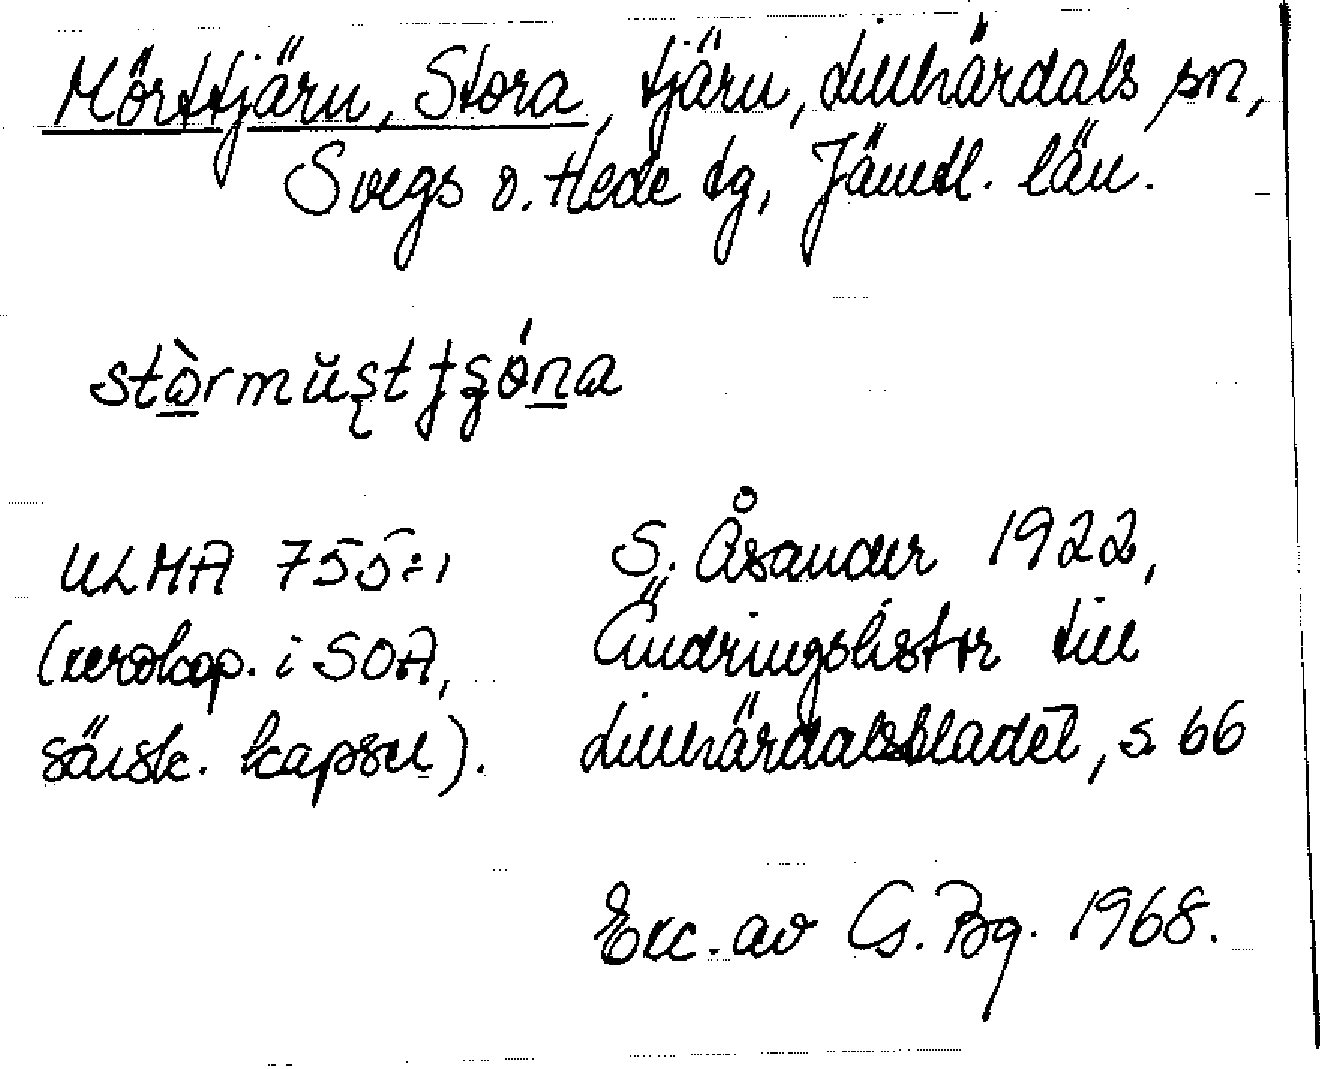 Mörttjärn, Stora, tjärn, Lillhärdals sn,
Svegs o. Hede tg, Jämtl. län.
ULMA 755:1 S. Åsander 1922,
(xeroxkop. i SOA, Ändringslistor till
särsk. kapsel). Lillhärdalsbladet, s 66
Exc. av G. Bg. 1968.